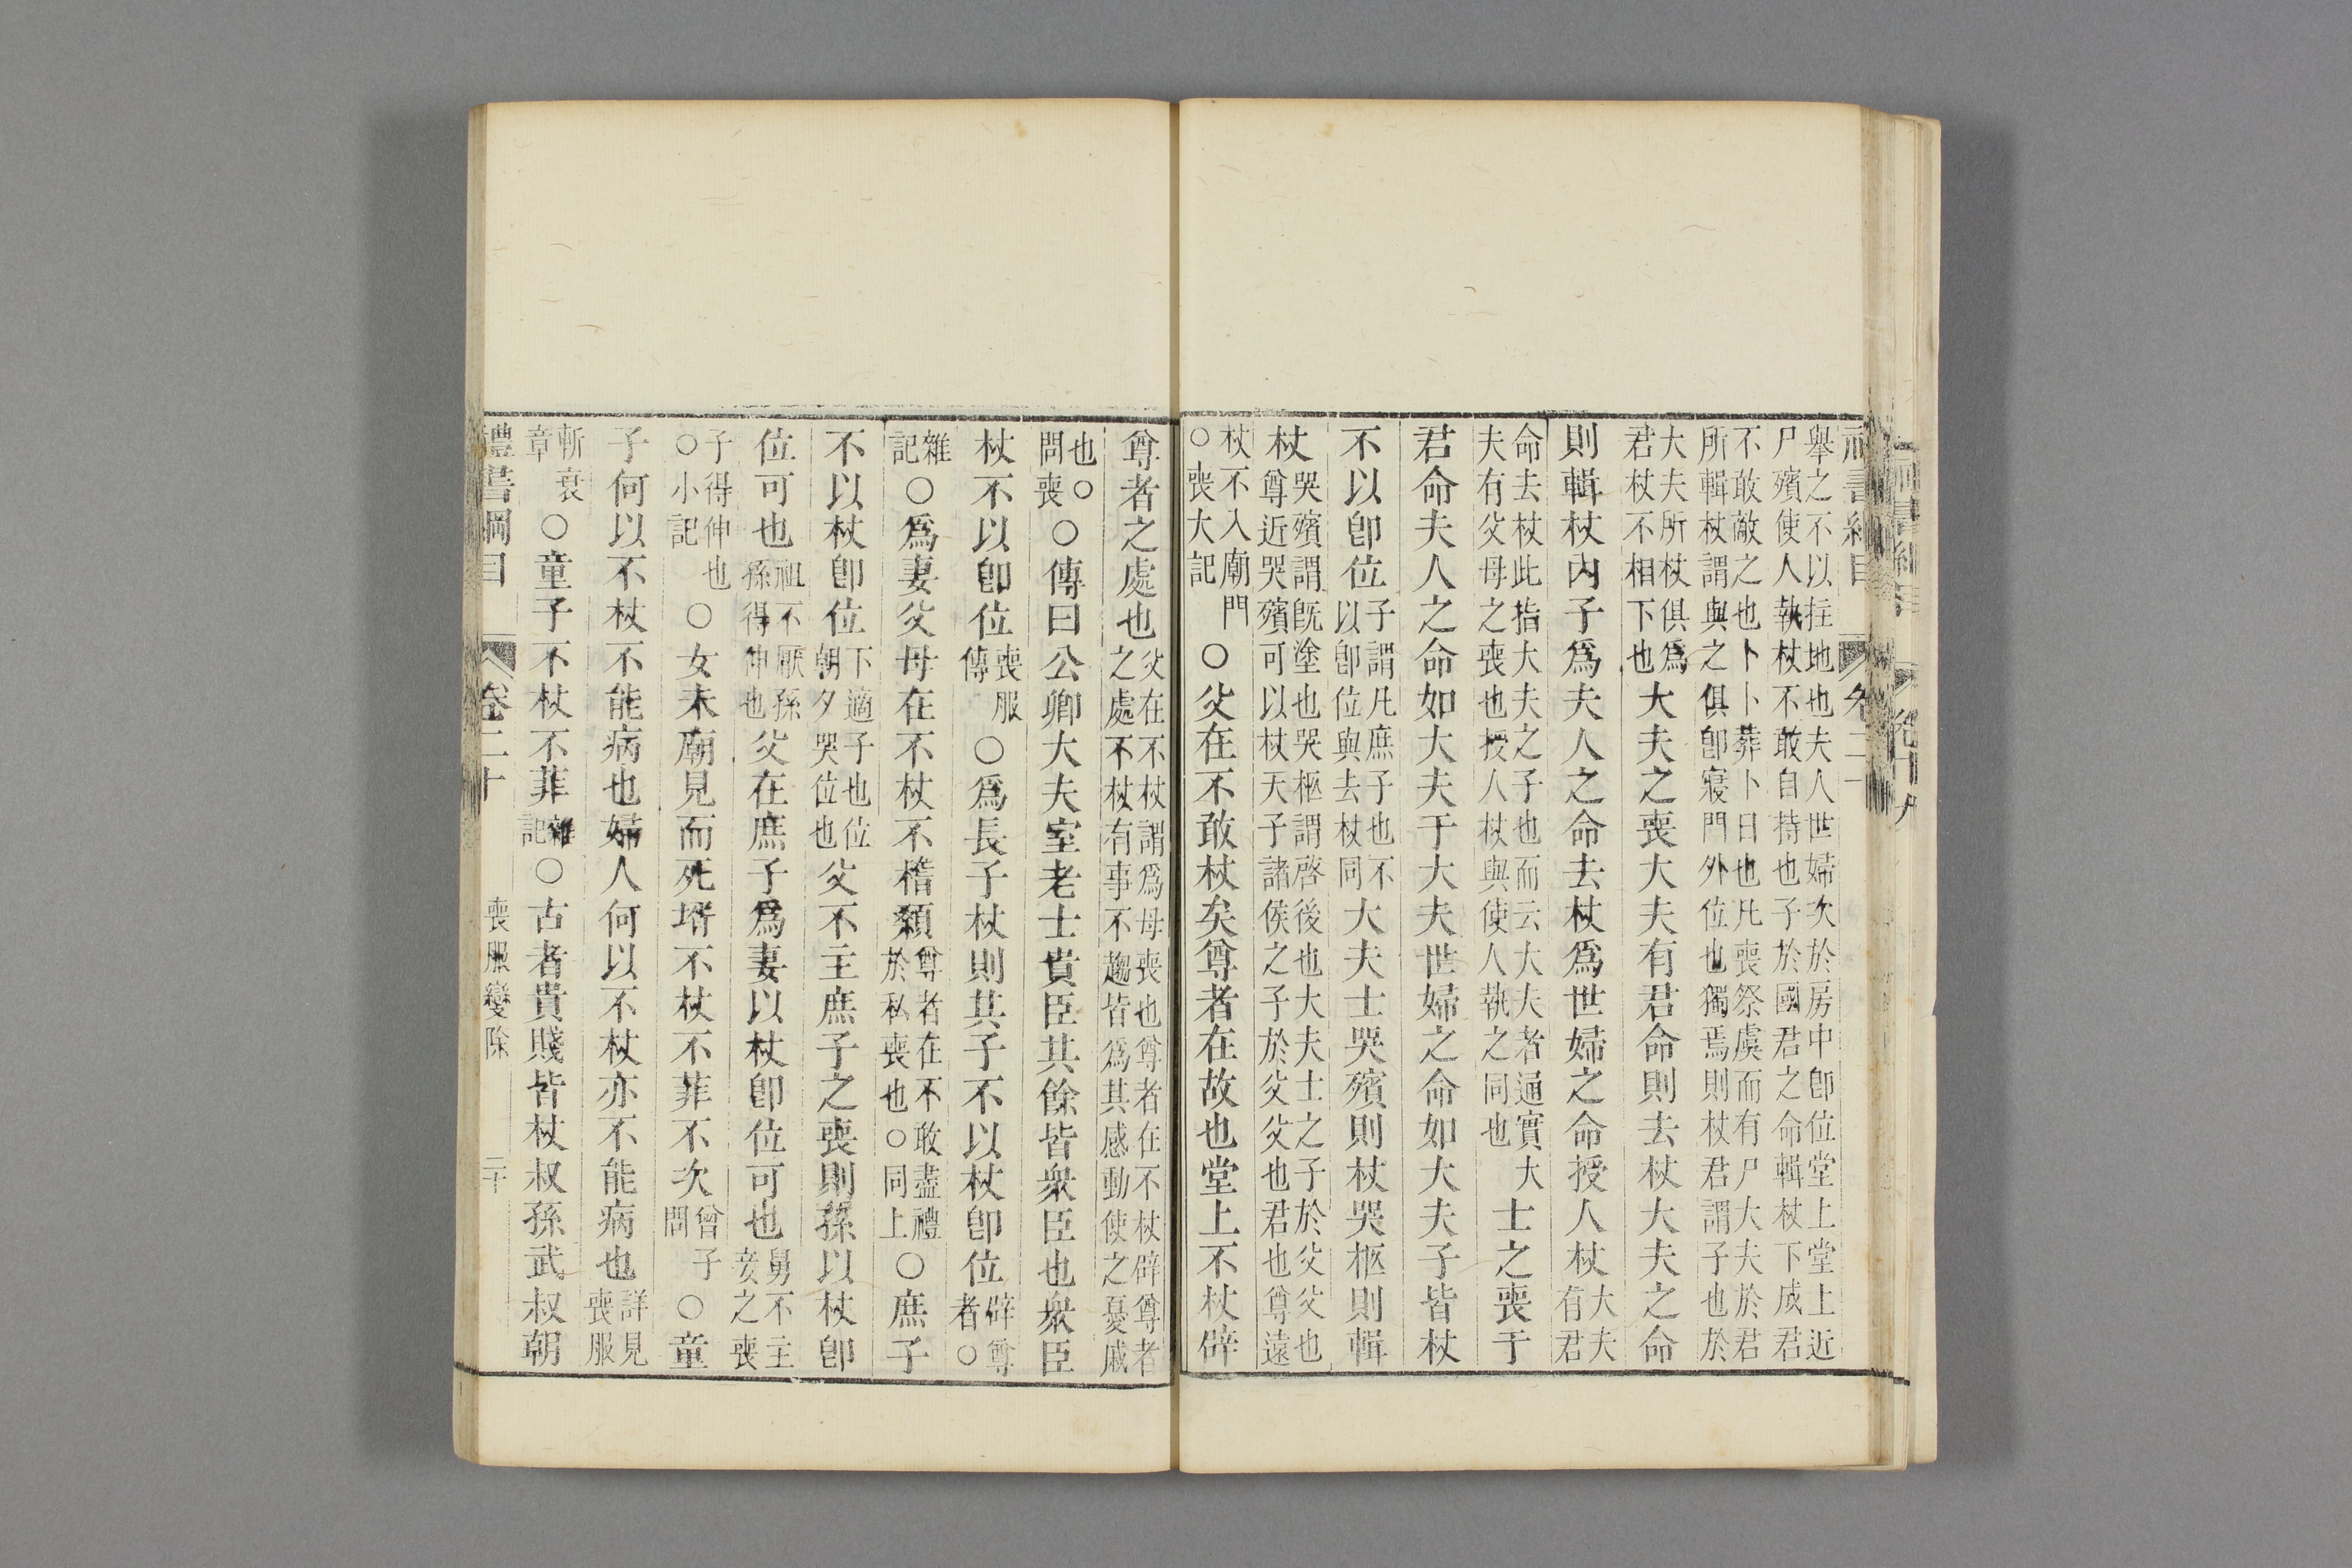 舉之不以拄地也夫人世婦次於房中卽位堂上堂上近
尸殯使人執杖不敢自持也子於國君之命輯杖下成君
不敢敵之也卜卜葬卜日也凡喪祭虞而有尸大夫於君
所輯杖謂與之俱卽寢門外位也獨焉則杖君謂子也於
大夫所杖俱爲
君杖不相下也
大夫之喪大夫有君命則去杖大夫之命
則輯杖內子爲夫人之命去杖爲世婦之命授人杖
大夫
有君
命去杖此指大夫之子也而云大夫者通實大
夫有父母之喪也授人杖與使人執之同也
士之喪于
君命夫人之命如大夫于大夫世婦之命如大夫子皆杖
不以卽位
子謂凡庶子也不
以卽位與去杖同
大夫士哭殯則杖哭柩則輯
杖
哭殯謂旣塗也哭柩謂啓後也大夫士之子於父父也
尊近哭殯可以杖天子諸侯之子於父父也君也尊遠
杖不入廟門
○喪大記
○父在不敢杖矣尊者在故也堂上不杖辟
尊者之處也
父在不杖謂爲母喪也尊者在不杖辟尊者
之處不杖有事不趨皆爲其感動使之憂戚
也○
問喪
○傳曰公卿大夫室老士貴臣其餘皆衆臣也衆臣
杖不以卽位
喪服
傳
○爲長子杖則其子不以杖卽位
辟尊
者○
雜
記
○爲妻父母在不杖不稽顙
尊者在不敢盡禮
於私喪也○同上
○庶子
不以杖卽位
下適子也位
朝夕哭位也
父不主庶子之喪則孫以杖卽
位可也
祖不厭孫
孫得伸也
父在庶子爲妻以杖卽位可也
舅不主
妾之喪
子得伸也
○小記
○女未廟見而死壻不杖不菲不次
曾子
問
○童
子何以不杖不能病也婦人何以不杖亦不能病也
詳見
喪服
斬衰
章
○童子不杖不菲
雜
記
○古者貴賤皆杖叔孫武叔朝
禮書綱目 卷二十 喪服變除 二十